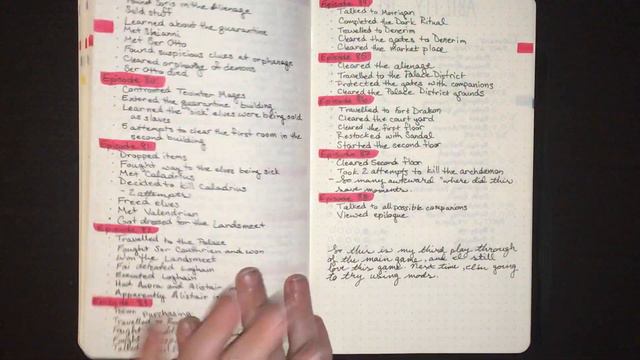 Found Soris in the Alienage
Sold stuff
Learned about the quarantine
Met Shianni
Met Ser Otto
Found suspicious clues at orphanage
Cleared orphanage of demons
Ser Otto died
Episode 80
Confronted Tevinter Mages
Entered the quarantine building
Learned the "sick" elves were being sold
as slaves
5 attempts to clear the first room in the
second building
Episode 81
Dropped items
Fought way to the elves being sick
Met Caladrius
Decided to kill Caladrius
- 2 attempts
Freed elves
Met Valendrian
Got dressed for the Landsmeet
Episode 82
Travelled to the Palace
Fought Ser Cauthrien and won
Won the Landsmeet
Fai defeated Loghain
Executed Loghain
Had Anora and Alistair
Apparently Alistair
Episode 83
purchasing
Travelled
Fought
Talked
Talked to Morrigan
Completed the Dark Ritual
Travelled to Denerim
Cleared the gates to Denerim
Cleared the market place
Episode 85
Cleared the alienage
Travelled to the Palace District
Protected the gates with companions
Cleared the Palace District grounds
Episode 86
Travelled to Fort Drakon
Cleared the court yard
Cleared the first floor
Restocked with Sandal
Started the second floor
Episode 87
Cleared Second floor
Took 2 attempts to kill the archdemon
- So many awkward "where did this
save" moments.
Episode 88
Talked to all possible companions
Viewed epilogue
So this is my third play through
of the main game, and I still
love this game. Next time, I'm going
to try using mods.